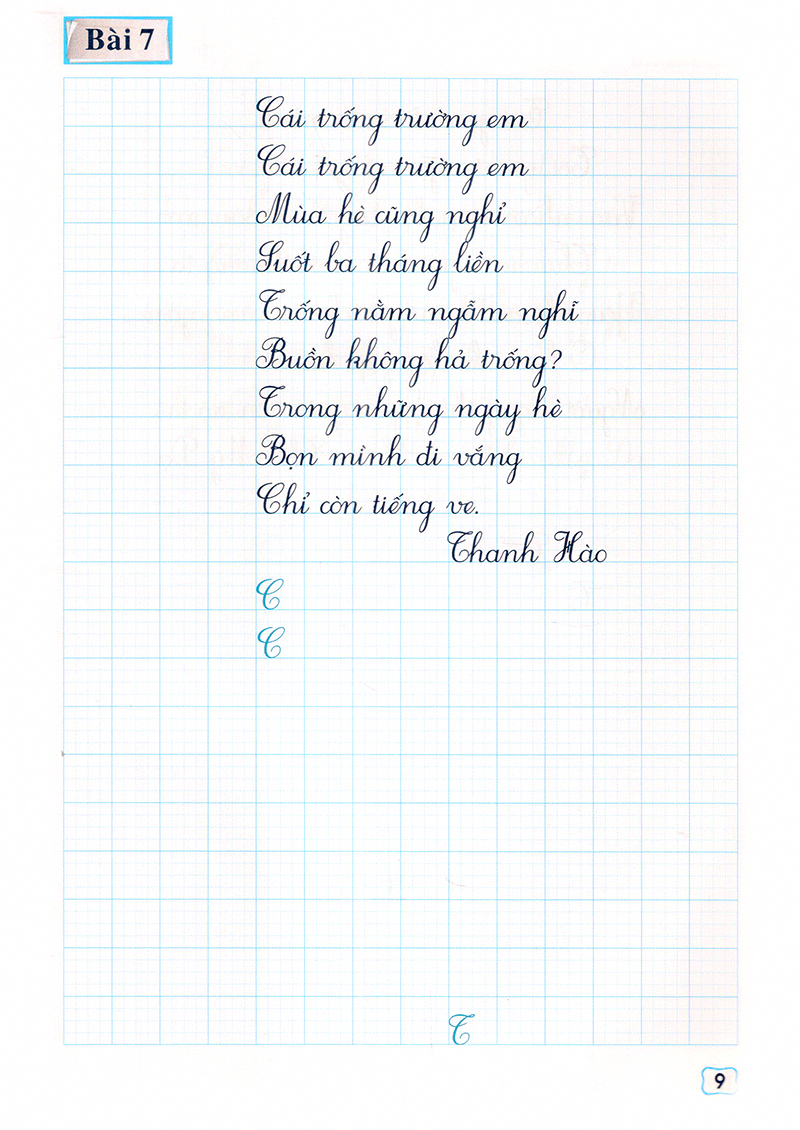 Bài 7
Cái trống trường em
Cái trống trường em
Mùa hè cũng nghỉ
Suốt ba tháng liền
Trống nằm ngẫm nghĩ
Buồn không hả trống?
Trong những ngày hè
Bọn mình đi vắng
Chỉ còn tiếng ve.
Thanh Hào
C
C
T
9